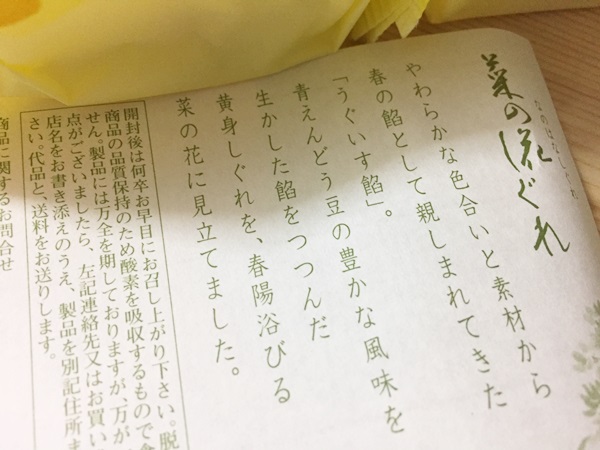 菜の花しぐれ
なのはなしぐれ
やわらかな色合いと素材から
春の餡として親しまれてきた
「うぐいす餡」。
青えんどう豆の豊かな風味を
生かした餡をつつんだ
黄身しぐれを、春陽浴びる
菜の花に見立てました。
開封後は何卒お早目にお召し上がり下さい。脱
商品の品質保持のため酸素を吸収するもので食
せん。製品には万全を期しておりますが、万が
点がございましたら、左記連絡先又はお買い
店名をお書き添えのうえ、製品を別記住所ま
さい。代品と、送料をお送りします。
商品に関するお問合せ